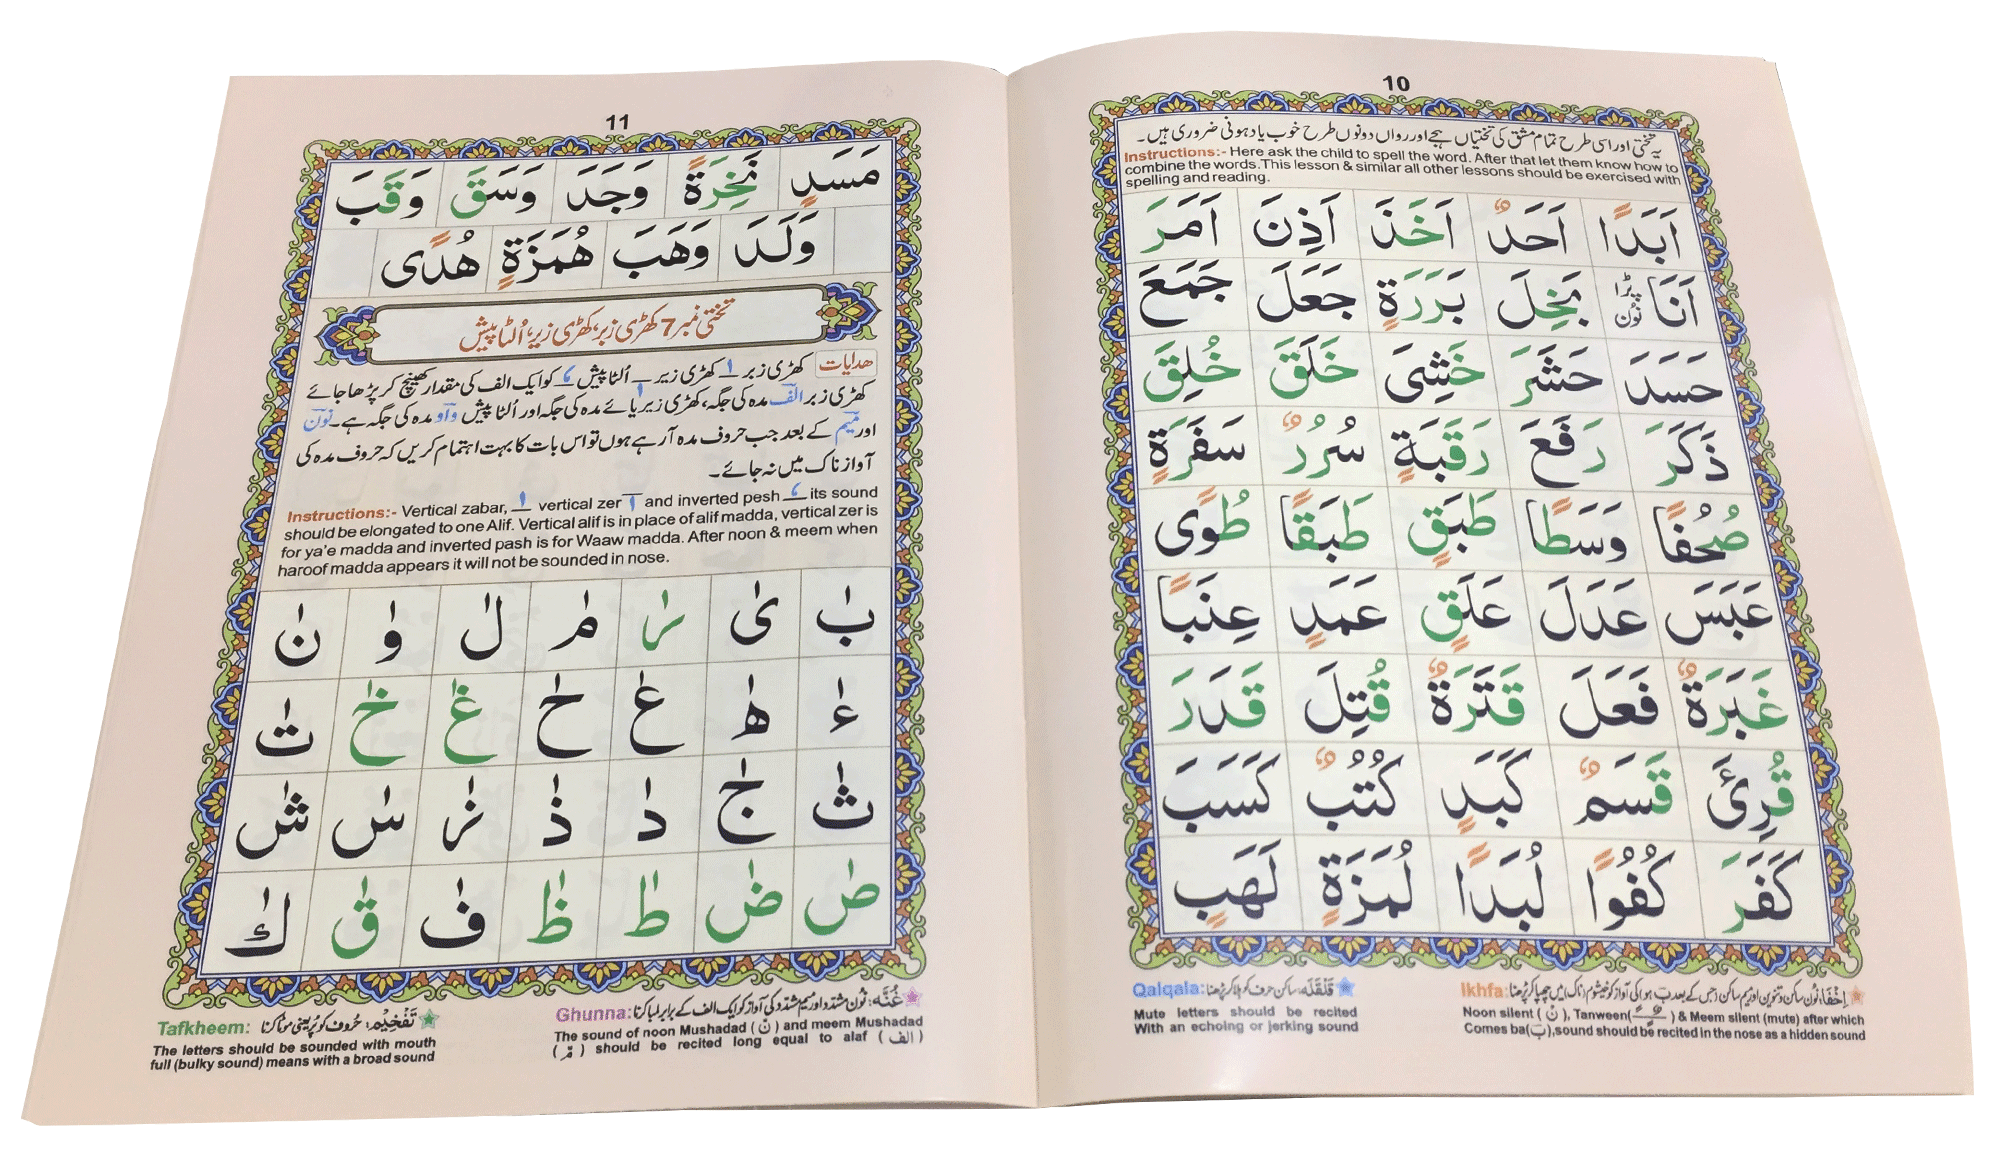 10
یہ تختی اور اسی طرح تمام مشق کی تختیاں ہجے اور رواں دونوں طرح خوب یاد ہونی ضروری ہیں۔
Instructions:- Here ask the child to spell the word. After that let them know how to
combine the words.This lesson & similar all other lessons should be exercised with
spelling and reading.
اَبَدًا اَحَدٌ اَخَذَ اَذِنَ اَمَرَ
اَنَا پڑا نُون بَخِلَ بَرَرَةٍ جَعَلَ جَمَعَ
حَسَدَ حَشَرَ خَشِیَ خَلَقَ خُلِقَ
ذَكَرَ رَفَعَ رَقَبَةٍ سُرُرٌ سَفَرَةٍ
صُحُفًا وَسَطًا طَبَقٍ طَبَقًا طُوًی
عَبَسَ عَدَلَ عَلَقٍ عَمَدٍ عِنَبًا
غَبَرَةٌ فَعَلَ قَتَرَةٌ قُتِلَ قَدَرَ
قُرِئَ قَسَمٌ كَبَدٍ كُتُبٌ كَسَبَ
كَفَرَ كُفُوًا لُبَدًا لُمَزَةٍ لَهَبٍ
اِخْفَا: نُون ساکن و تنوین اور میم ساکن (جس کے بعد ب ہو) کی آواز کو خیشوم (ناک) میں چھپا کر پڑھنا
Ikhfa:
Noon silent ( نْ ), Tanween( ـًـٍـٌ ) & Meem silent (mute) after which
Comes ba(بَ),sound should be recited in the nose as a hidden sound
قَلْقَلَه: ساکن حرف کو ہلا کر پڑھنا
Qalqala:
Mute letters should be recited
With an echoing or jerking sound
11
مَسَدٍ نَخِرَةً وَجَدَ وَسَقَ وَقَبَ
وَلَدَ وَهَبَ هُمَزَةٍ هُدًی
تختی نمبر 7 کھڑی زبر، کھڑی زیر، اُلٹا پیش
هدایات کھڑی زبر ـٰ کھڑی زیر ـٖ اُلٹا پیش ـٗ کو ایک الف کی مقدار کھینچ کر پڑھا جائے
کھڑی زبر الف مدہ کی جگہ، کھڑی زیر یائے مدہ کی جگہ اور اُلٹا پیش واو مدہ کی جگہ ہے۔ نون
اور میم کے بعد جب حروف مدہ آ رہے ہوں تو اس بات کا بہت اہتمام کریں کہ حروف مدہ کی
آواز ناک میں نہ جائے۔
Instructions:- Vertical zabar, ـٰ vertical zer ـٖ and inverted pesh ـٗ its sound
should be elongated to one Alif. Vertical alif is in place of alif madda, vertical zer is
for ya'e madda and inverted pash is for Waaw madda. After noon & meem when
haroof madda appears it will not be sounded in nose.
بٰ یٰ رٰ مٰ لٰ وٰ نٰ
ءٰ هٰ عٰ حٰ غٰ خٰ تٰ
ثٰ جٰ دٰ ذٰ زٰ سٰ شٰ
صٰ ضٰ طٰ ظٰ فٰ قٰ كٰ
غُنَّه: نُون مشدد اور میم مشدد کی آواز کو ایک الف کے برابر لمبا کرنا
Ghunna:
The sound of noon Mushadad ( نّ ) and meem Mushadad
( مّ ) should be recited long equal to alaf ( الف )
تَفْخِیْم: حُروف کو پُر یعنی موٹا کرنا
Tafkheem:
The letters should be sounded with mouth
full (bulky sound) means with a broad sound